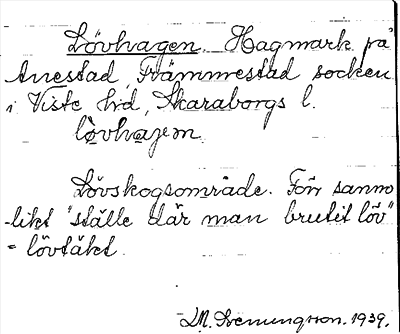 Lövhagen. Hagmark på
Anestad, Främmestad socken
i Viste hd, Skaraborgs l.
lövhagem.
Lövskogsområde. Förr sanno
-likt "ställe där man brutit löv"
= lövtäkt.
1939.